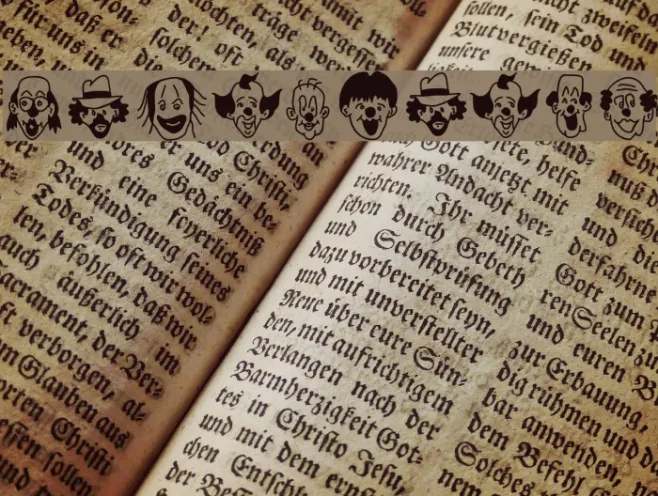 für uns in
daß er
die
der! oft
solchem
träge
als
damit wir
nicht vergessen
Tod Christi,
er uns ein be-
Gedächtniß
und eine feyerliche
Verkündigung seines
Todes, so oft wir wol-
len, befohlen, daß wir
auch äußerlich im
Sacrament, der Ver-
verborgen, al-
im Glauben aus
Christi
sollen
und
sollen, sein Tod und
Blutvergießen
unsere
helfe
Gott anjetzt mit
wahrer Andacht ver-
richten. Ihr müsset
schon durch Gebeth
und Selbstprüfung
dazu vorbereitet seyn,
und mit unverstellter
Reue über eure Sün-
den, mit aufrichtigem
Verlangen nach der
Barmherzigkeit Got-
tes in Christo Jesu,
und mit dem
chen
der
nicht zweifeln
und die
derfahrne
Gott zum
ren Seelen zu
und euren
zur Erbauung,
dig rühmen und
bar anwenden,
dem Befehl
Solches